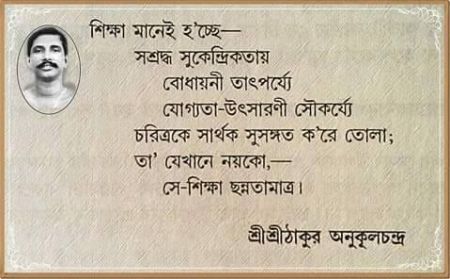 শিক্ষা মানেই হ'চ্ছে—
সশ্রদ্ধ সুকেন্দ্রিকতায়
বোধায়নী তাৎপর্য্যে
যোগ্যতা-উৎসারণী সৌকর্য্যে
চরিত্রকে সার্থক সুসঙ্গত ক'রে তোলা;
তা' যেখানে নয়কো,—
সে-শিক্ষা ছন্নতামাত্র।
শ্রীশ্রীঠাকুর অনুকূলচন্দ্র